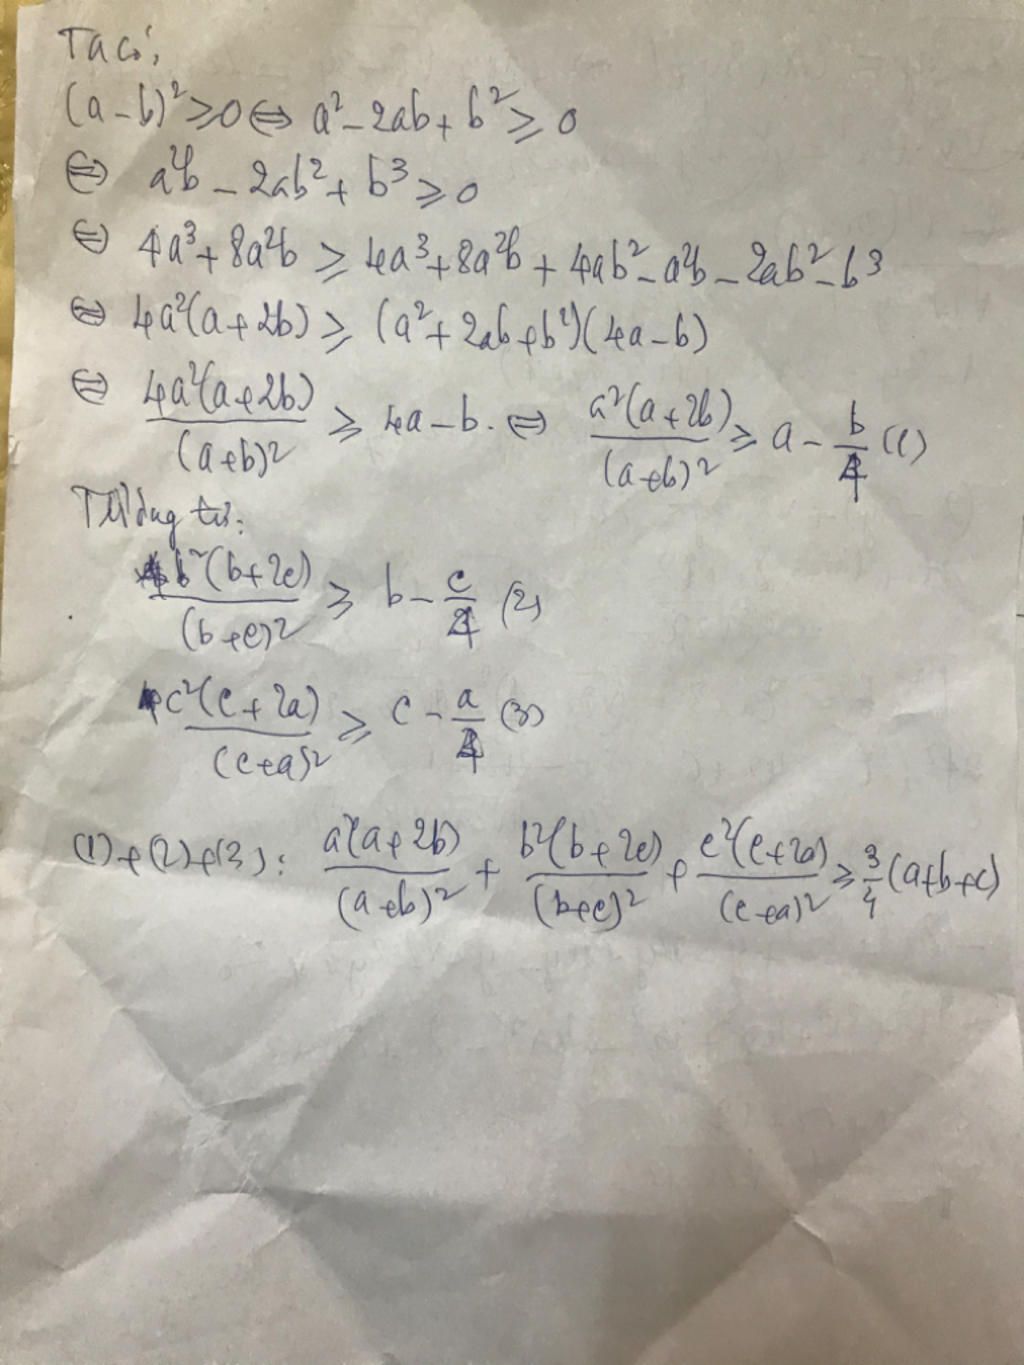 Ta có:
(a-b)² ≥ 0 ⇔ a² - 2ab + b² ≥ 0
⇔ a²b - 2ab² + b³ ≥ 0
⇔ 4a³ + 8a²b ≥ 4a³ + 8a²b + 4ab² - a²b - 2ab² - b³
⇔ 4a²(a+2b) ≥ (a² + 2ab + b²)(4a - b)
⇔ 4a²(a+2b)/(a+b)² ≥ 4a - b. ⇔ a²(a+2b)/(a+b)² ≥ a - b/4 (1)
Tương tự:
b²(b+2c)/(b+c)² ≥ b - c/4 (2)
c²(c+2a)/(c+a)² ≥ c - a/4 (3)
(1)+(2)+(3): a²(a+2b)/(a+b)² + b²(b+2c)/(b+c)² + c²(c+2a)/(c+a)² ≥ 3/4 (a+b+c)